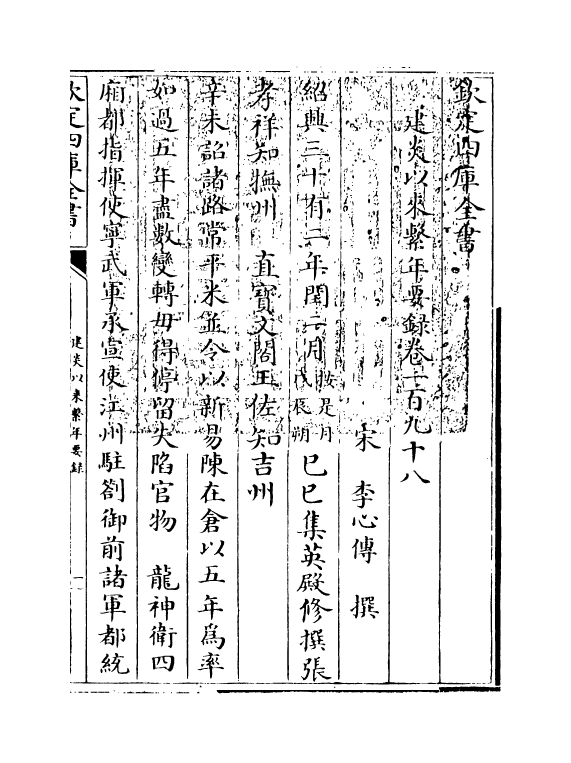 欽定四庫全書
建炎以來繫年要錄卷一百九十八
宋 李心傳 撰
紹興三十有二年閏二月按是月戊辰朔 己巳集英殿修撰張
孝祥知撫州 直寶文閣王佐知吉州
辛未詔諸路常平米並令以新易陳在倉以五年為率
如過五年盡數變轉毋得停留失陷官物 龍神衛四
廂都指揮使寧武軍承宣使江州駐劄御前諸軍都統
欽定四庫全書
建炎以來繫年要錄
一